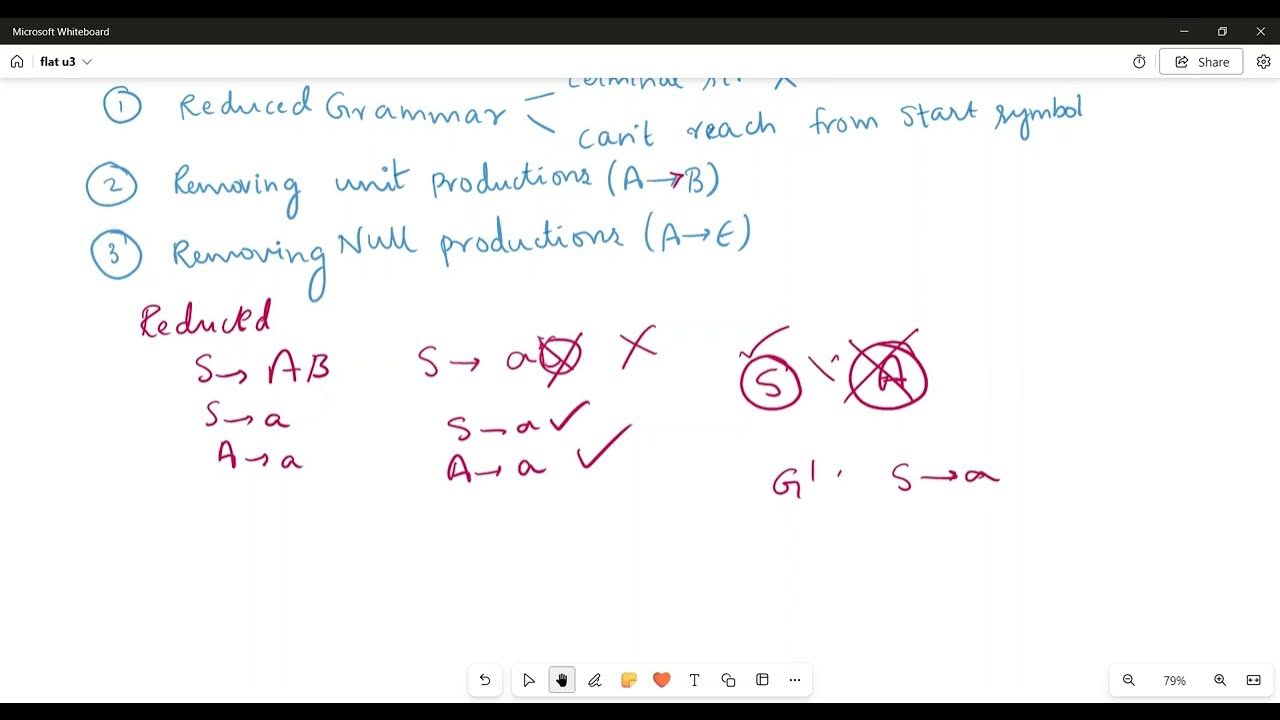 Microsoft Whiteboard
flat u3
Share
terminal
① Reduced Grammar
can't reach from start symbol
② Removing unit productions (A→B)
③ Removing Null productions (A→ϵ)
Reduced
S→ AB
S→a
A→a
S→ a
S→a ✓
A→a ✓
S
A
G' : S→a
T
79%